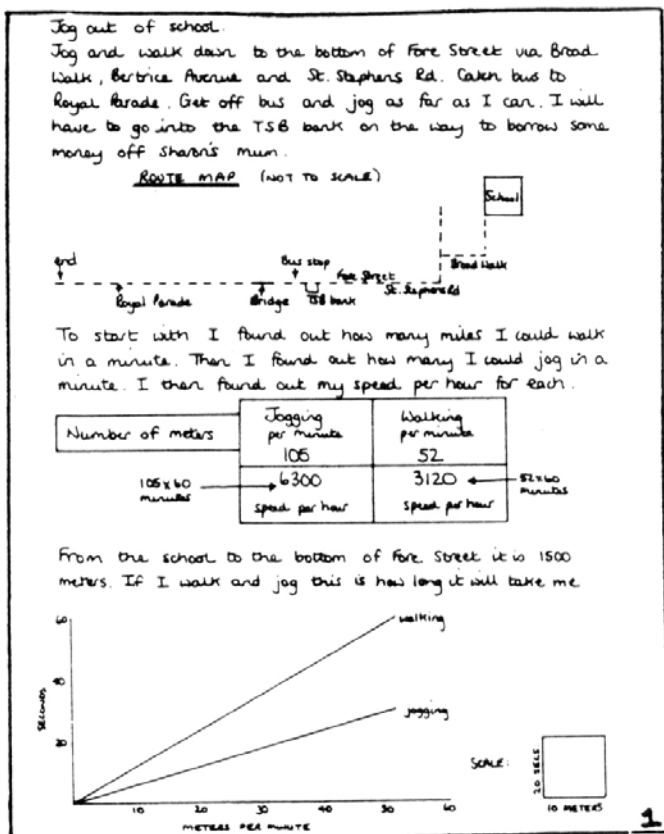 Jog out of school.
Jog and walk down to the bottom of Fore Street via Broad
Walk, Bertrice Avenue and St. Stephens Rd. Catch bus to
Royal Parade. Get off bus and jog as far as I can. I will
have to go into the TSB bank on the way to borrow some
money off Sharon's mum.
ROUTE MAP (NOT TO SCALE)
School
end
Bus stop
Fore Street
Broad Walk
Royal Parade
Bridge
TSB bank
St. Stephens Rd
To start with I found out how many miles I could walk
in a minute. Then I found out how many I could jog in a
minute. I then found out my speed per hour for each.
Number of meters
Jogging
per minute
105
Walking
per minute
52
105 x 60
minutes
6300
speed per hour
3120
speed per hour
52x60
minutes
From the school to the bottom of Fore Street it is 1500
meters. If I walk and jog this is how long it will take me
60
40
20
SECONDS
walking
jogging
10 20 30 40 50 60
METERS PER MINUTE
SCALE:
20 SECS
10 METERS
1